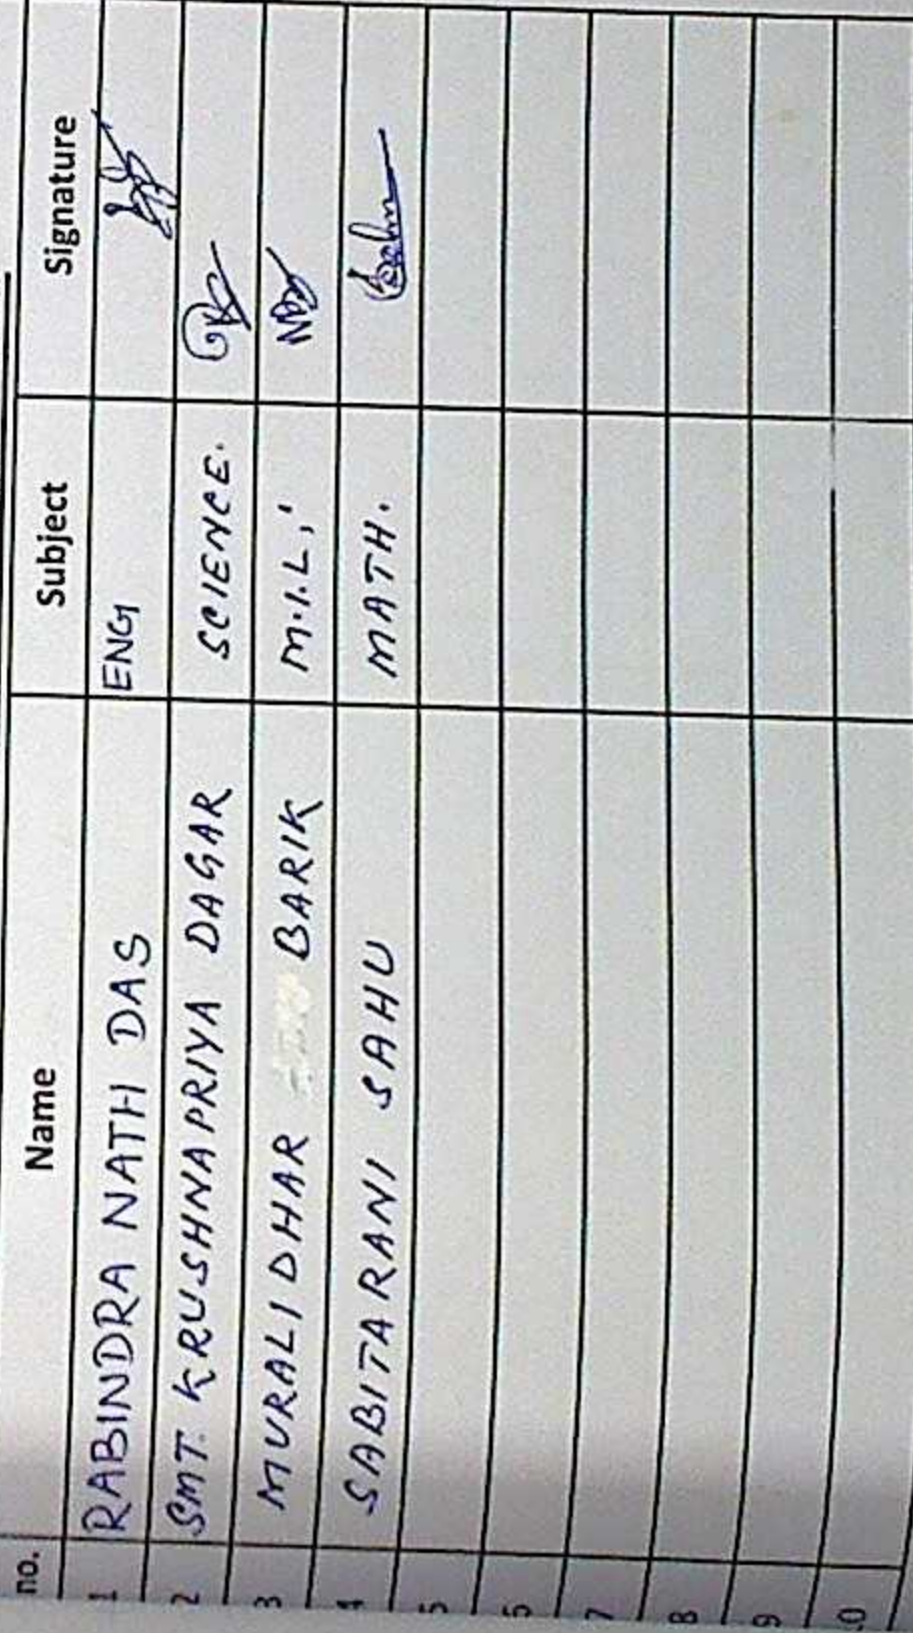 no. Name Subject Signature
1 RABINDRA NATH DAS ENG
2 SMT. KRUSHNAPRIYA DAGAR SCIENCE.
3 MURALIDHAR BARIK M.I.L.
4 SABITARANI SAHU MATH.
5
6
7
8
9
10